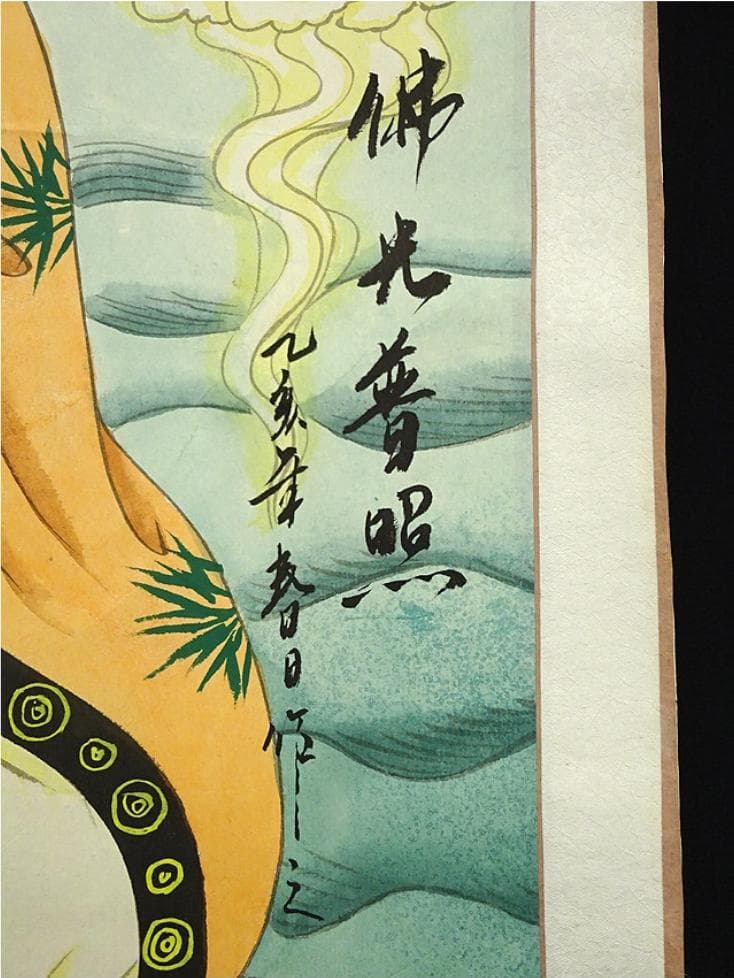 佛光普照
乙亥年春日作之